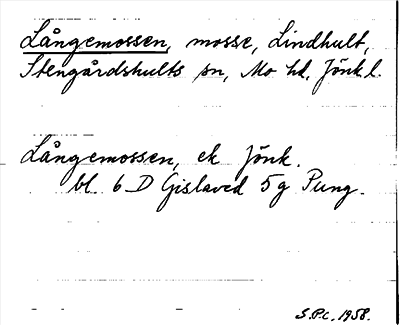 Långemossen, mosse, Lindhult,
Stengårdshults sn, Mo hd, Jönk. l.
Långemossen, ek Jönk.
bl. 6 D Gislaved 5 g Pung.
S.P.C., 1958.